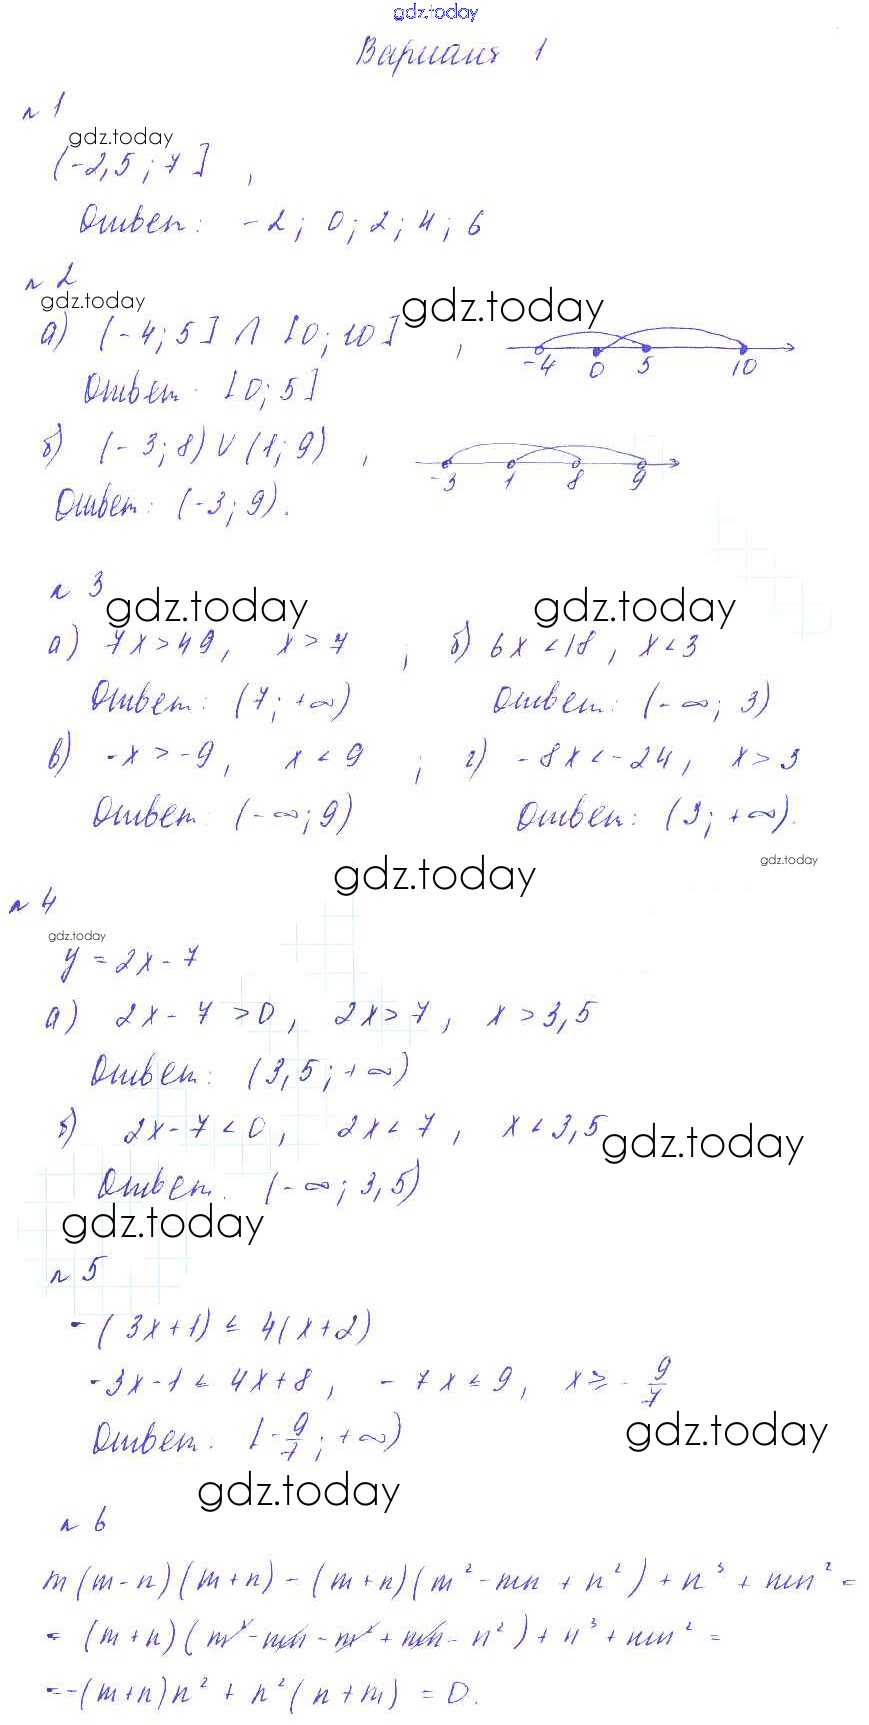 gdz.today
Вариант 1
n 1
gdz.today
(-2,5 ; 7] ,
Ответ: -2 ; 0 ; 2 ; 4 ; 6
n 2
gdz.today gdz.today
а) (-4; 5] ∩ [0; 10] , -4 0 5 10
Ответ. [0; 5]
б) (-3; 8) ∪ (1; 9) , -3 1 8 9
Ответ: (-3; 9).
n 3
gdz.today gdz.today
а) 7x > 49, x > 7 ; б) 6x < 18, x < 3
Ответ: (7; +∞) Ответ: (-∞; 3)
в) -x > -9, x < 9 ; г) -8x < -24, x > 3
Ответ: (-∞; 9) Ответ: (3; +∞).
gdz.today gdz.today
n 4
gdz.today
y = 2x - 7
а) 2x - 7 > 0, 2x > 7, x > 3,5
Ответ: (3,5; +∞)
б) 2x - 7 < 0, 2x < 7, x < 3,5
gdz.today
Ответ. (-∞; 3,5)
gdz.today
n 5
-(3x+1) ≤ 4(x+2)
-3x-1 ≤ 4x+8, -7x ≤ 9, x ≥ -9/7
Ответ: [-9/7; +∞)
gdz.today
gdz.today
n 6
m(m-n)(m+n) - (m+n)(m² - mn + n²) + n³ + mn² =
= (m+n)(m² - mn - m² + mn - n²) + n³ + mn² =
= -(m+n)n² + n²(n+m) = 0.